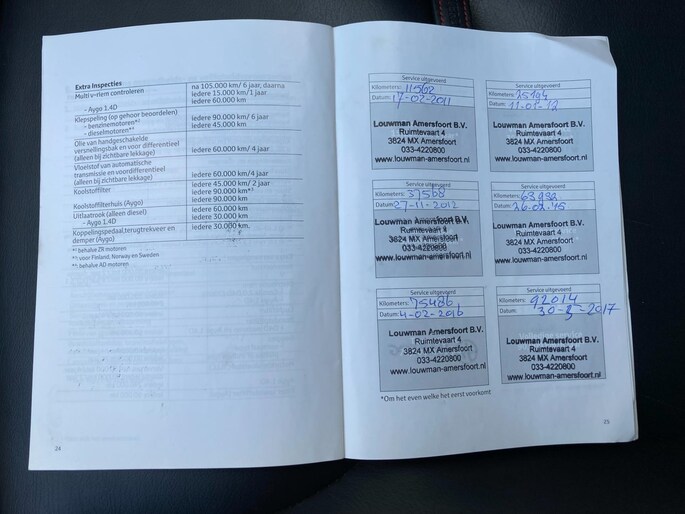 Extra Inspecties
na 105.000 km/ 6 jaar, daarna
Multi v-riem controleren
iedere 15.000 km/1 jaar
- Aygo 1.4D
iedere 60.000 km
Klepspeling (op gehoor beoordelen)
- benzinemotoren*¹
iedere 90.000 km/ 6 jaar
- dieselmotoren*³
iedere 45.000 km
Olie van handgeschakelde
versnellingsbak en voor differentieel
(alleen bij zichtbare lekkage)
iedere 60.000 km/4 jaar
Vloeistof van automatische
transmissie en voordifferentieel
(alleen bij zichtbare lekkage)
iedere 60.000 km/4 jaar
Koolstoffilter
iedere 45.000 km/ 2 jaar
iedere 90.000 km*²
Koolstoffilterhuis (Aygo)
iedere 90.000 km
Uitlaatrook (alleen diesel)
iedere 60.000 km
- Aygo 1.4D
iedere 30.000 km
Koppelingspedaal,terugtrekveer en
demper (Aygo)
iedere 30.000 km.
*¹ behalve ZR motoren
*² voor Finland, Norway en Sweden
*³ behalve AD motoren
24
Service uitgevoerd
Kilometers: 11562
Datum: 17-02-2011
Louwman Amersfoort B.V.
Ruimtevaart 4
3824 MX Amersfoort
033-4220800
www.louwman-amersfoort.nl
Service uitgevoerd
Kilometers:
Datum:
Louwman Amersfoort B.V.
Ruimtevaart 4
3824 MX Amersfoort
033-4220800
www.louwman-amersfoort.nl
Service uitgevoerd
Kilometers: 37568
Datum: 27-11-2012
Louwman Amersfoort B.V.
Ruimtevaart 4
3824 MX Amersfoort
033-4220800
www.louwman-amersfoort.nl
Service uitgevoerd
Kilometers:
Datum:
Louwman Amersfoort B.V.
Ruimtevaart 4
3824 MX Amersfoort
033-4220800
www.louwman-amersfoort.nl
Service uitgevoerd
Kilometers: 75486
Datum: 4-02-2016
Louwman Amersfoort B.V.
Ruimtevaart 4
3824 MX Amersfoort
033-4220800
www.louwman-amersfoort.nl
Service uitgevoerd
Kilometers: 92014
Datum: 30-3-2017
Louwman Amersfoort B.V.
Ruimtevaart 4
3824 MX Amersfoort
033-4220800
www.louwman-amersfoort.nl
*Om het even welke het eerst voorkomt
25